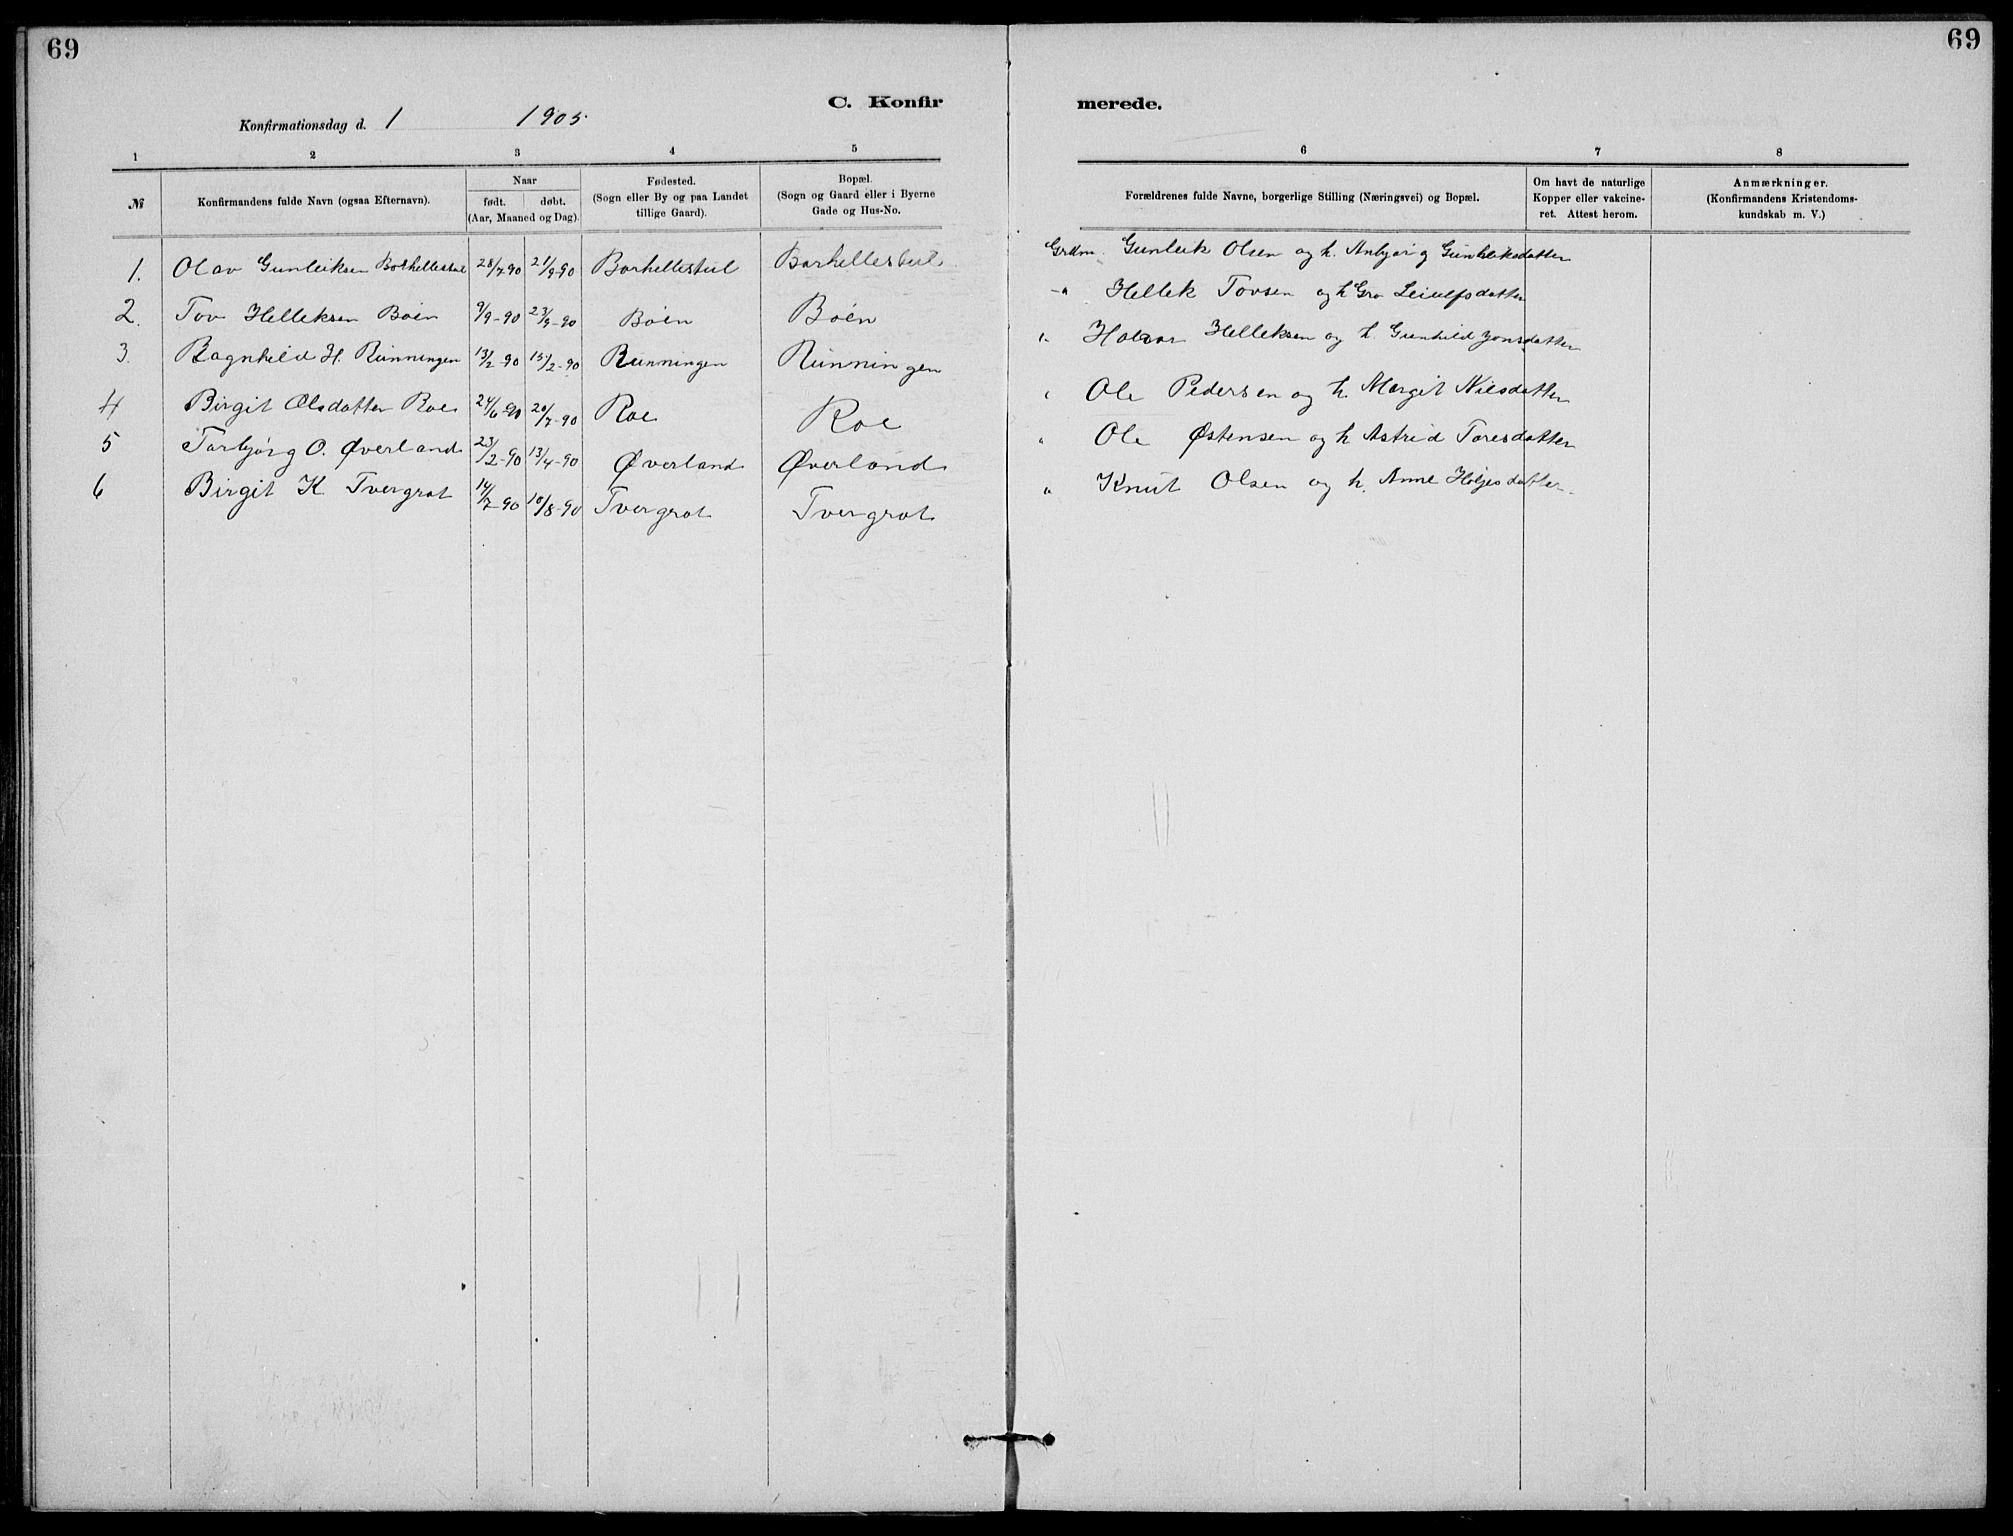 69
69
C. Konfir
merede.
Konfirmationsdag d. 1 1905.
1 2 3 4 5
6 7 8
№
Konfirmandens fulde Navn (ogsaa Efternavn).
Naar
født. døbt.
(Aar, Maaned og Dag).
Fødested.
(Sogn eller By og paa Landet
tillige Gaard).
Bopæl.
(Sogn og Gaard eller i Byerne
Gade og Hus-No.
Forældrenes fulde Navne, borgerlige Stilling (Næringsvei) og Bopæl.
Om havt de naturlige
Kopper eller vakcine-
ret. Attest herom.
Anmærkninger.
(Konfirmandens Kristendoms-
kundskab m. V.)
1. Olav Gunleiksen 28/7-90 21/9-90 Barhellestul Barhellestul Grdm. Gunleik Olsen og h. Anbjørg Gunleiksdatter
2. Tov Helleksen Böen 9/9-90 23/9-90 Böen Böen -" Hellek Tovsen og h Gro Leiulfsdatter
3. Ragnhild H. Rünningen 13/2-90 15/2-90 Runningen Rünningen " Halvor Helleksen og h. Gunhild Jonsdatter
4 Birgit Olsdatter Roe 24/6-90 20/7-90 Roe Roe " Ole Pedersen og h. Margit Nilsdatter
5 Tarbjørg O. Øverland 23/2-90 13/4-90 Øverland Øverland " Ole Østensen og h Astrid Toresdatter
6 Birgit K Tvergrot 14/7-90 10/8-90 Tvergrot Tvergrot " Knut Olsen og h. Anne Holjesdatter.